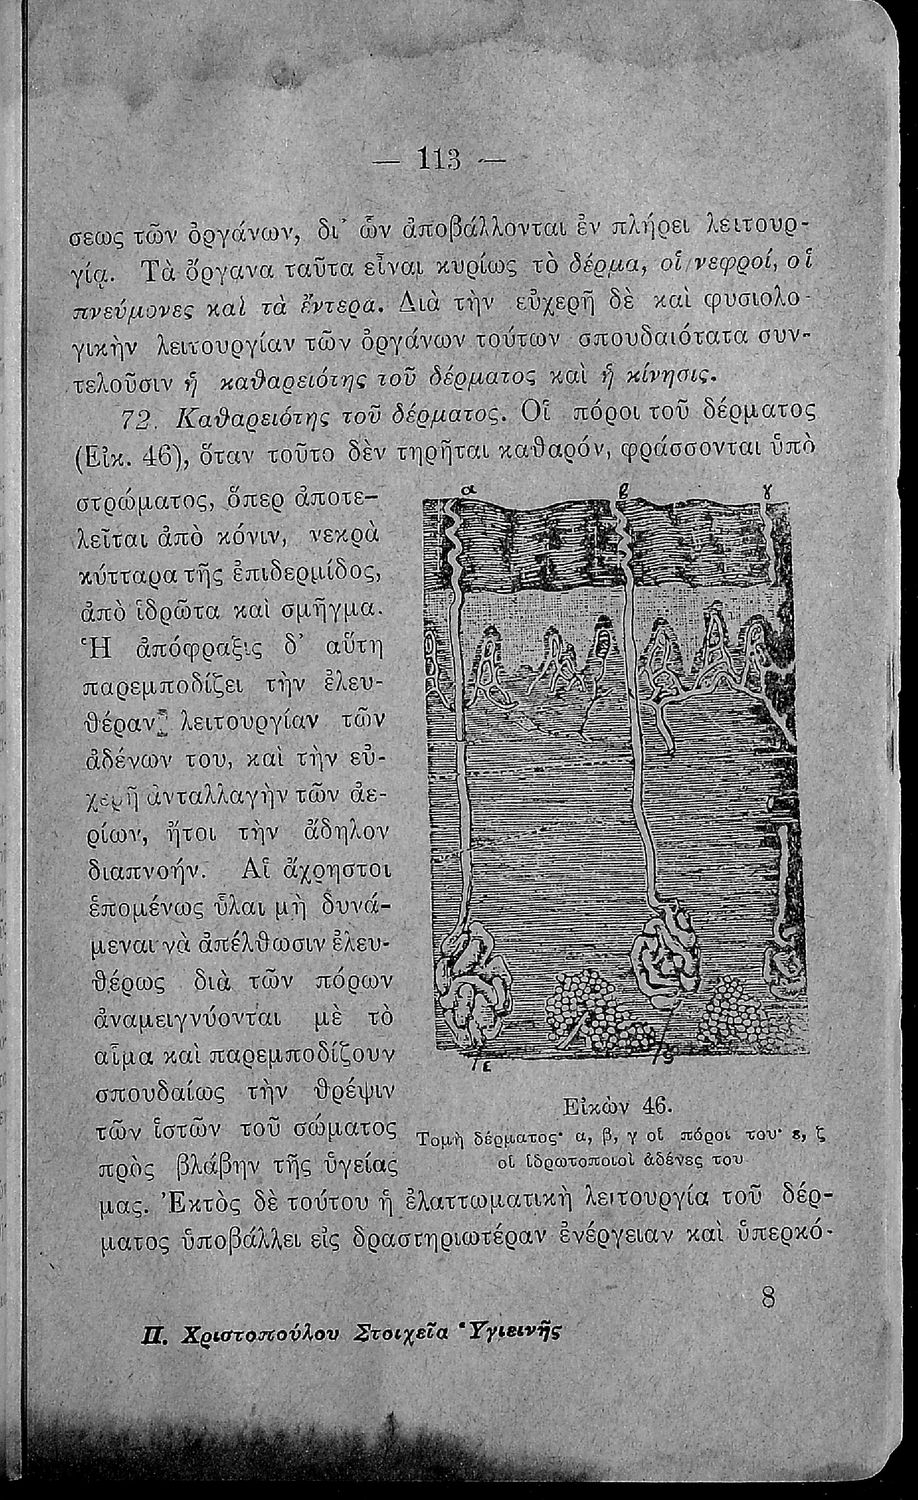 — 113 —
σεως τῶν ὀργάνων, δι᾿ ὧν ἀποβάλλονται ἐν πλήρει λειτουρ-
γίᾳ. Τὰ ὄργανα ταῦτα εἶναι κυρίως τὸ δέρμα, οἱ νεφροί, οἱ
πνεύμονες καὶ τὰ ἔντερα. Διὰ τὴν εὐχερῆ δὲ καὶ φυσιολο-
γικὴν λειτουργίαν τῶν ὀργάνων τούτων σπουδαιότατα συν-
τελοῦσιν ἡ καθαρειότης τοῦ δέρματος καὶ ἡ κίνησις.
72. Καθαρειότης τοῦ δέρματος. Οἱ πόροι τοῦ δέρματος
(Εἰκ. 46), ὅταν τοῦτο δὲν τηρῆται καθαρόν, φράσσονται ὑπὸ
στρώματος, ὅπερ ἀποτε-
λεῖται ἀπὸ κόνιν, νεκρὰ
κύτταρα τῆς ἐπιδερμίδος,
ἀπὸ ἱδρῶτα καὶ σμῆγμα.
Ἡ ἀπόφραξις δ᾿ αὕτη
παρεμποδίζει τὴν ἐλευ-
θέραν λειτουργίαν τῶν
ἀδένων του, καὶ τὴν εὐ-
χερῆ ἀνταλλαγὴν τῶν ἀε-
ρίων, ἤτοι τὴν ἄδηλον
διαπνοήν. Αἱ ἄχρηστοι
ἑπομένως ὗλαι μὴ δυνά-
μεναι νὰ ἀπέλθωσιν ἐλευ-
θέρως διὰ τῶν πόρων
ἀναμειγνύονται μὲ τὸ
αἷμα καὶ παρεμποδίζουν
σπουδαίως τὴν θρέψιν
τῶν ἱστῶν τοῦ σώματος
πρὸς βλάβην τῆς ὑγείας
μας. Ἐκτὸς δὲ τούτου ἡ ἐλαττωματικὴ λειτουργία τοῦ δέρ-
ματος ὑποβάλλει εἰς δραστηριωτέραν ἐνέργειαν καὶ ὑπερκό-
α β γ
ε ς
Εἰκὼν 46.
Τομὴ δέρματος· α, β, γ οἱ πόροι του· ε, ζ
οἱ ἱδρωτοποιοὶ ἀδένες του
8
Π. Χριστοπούλου Στοιχεῖα Ὑγιεινῆς